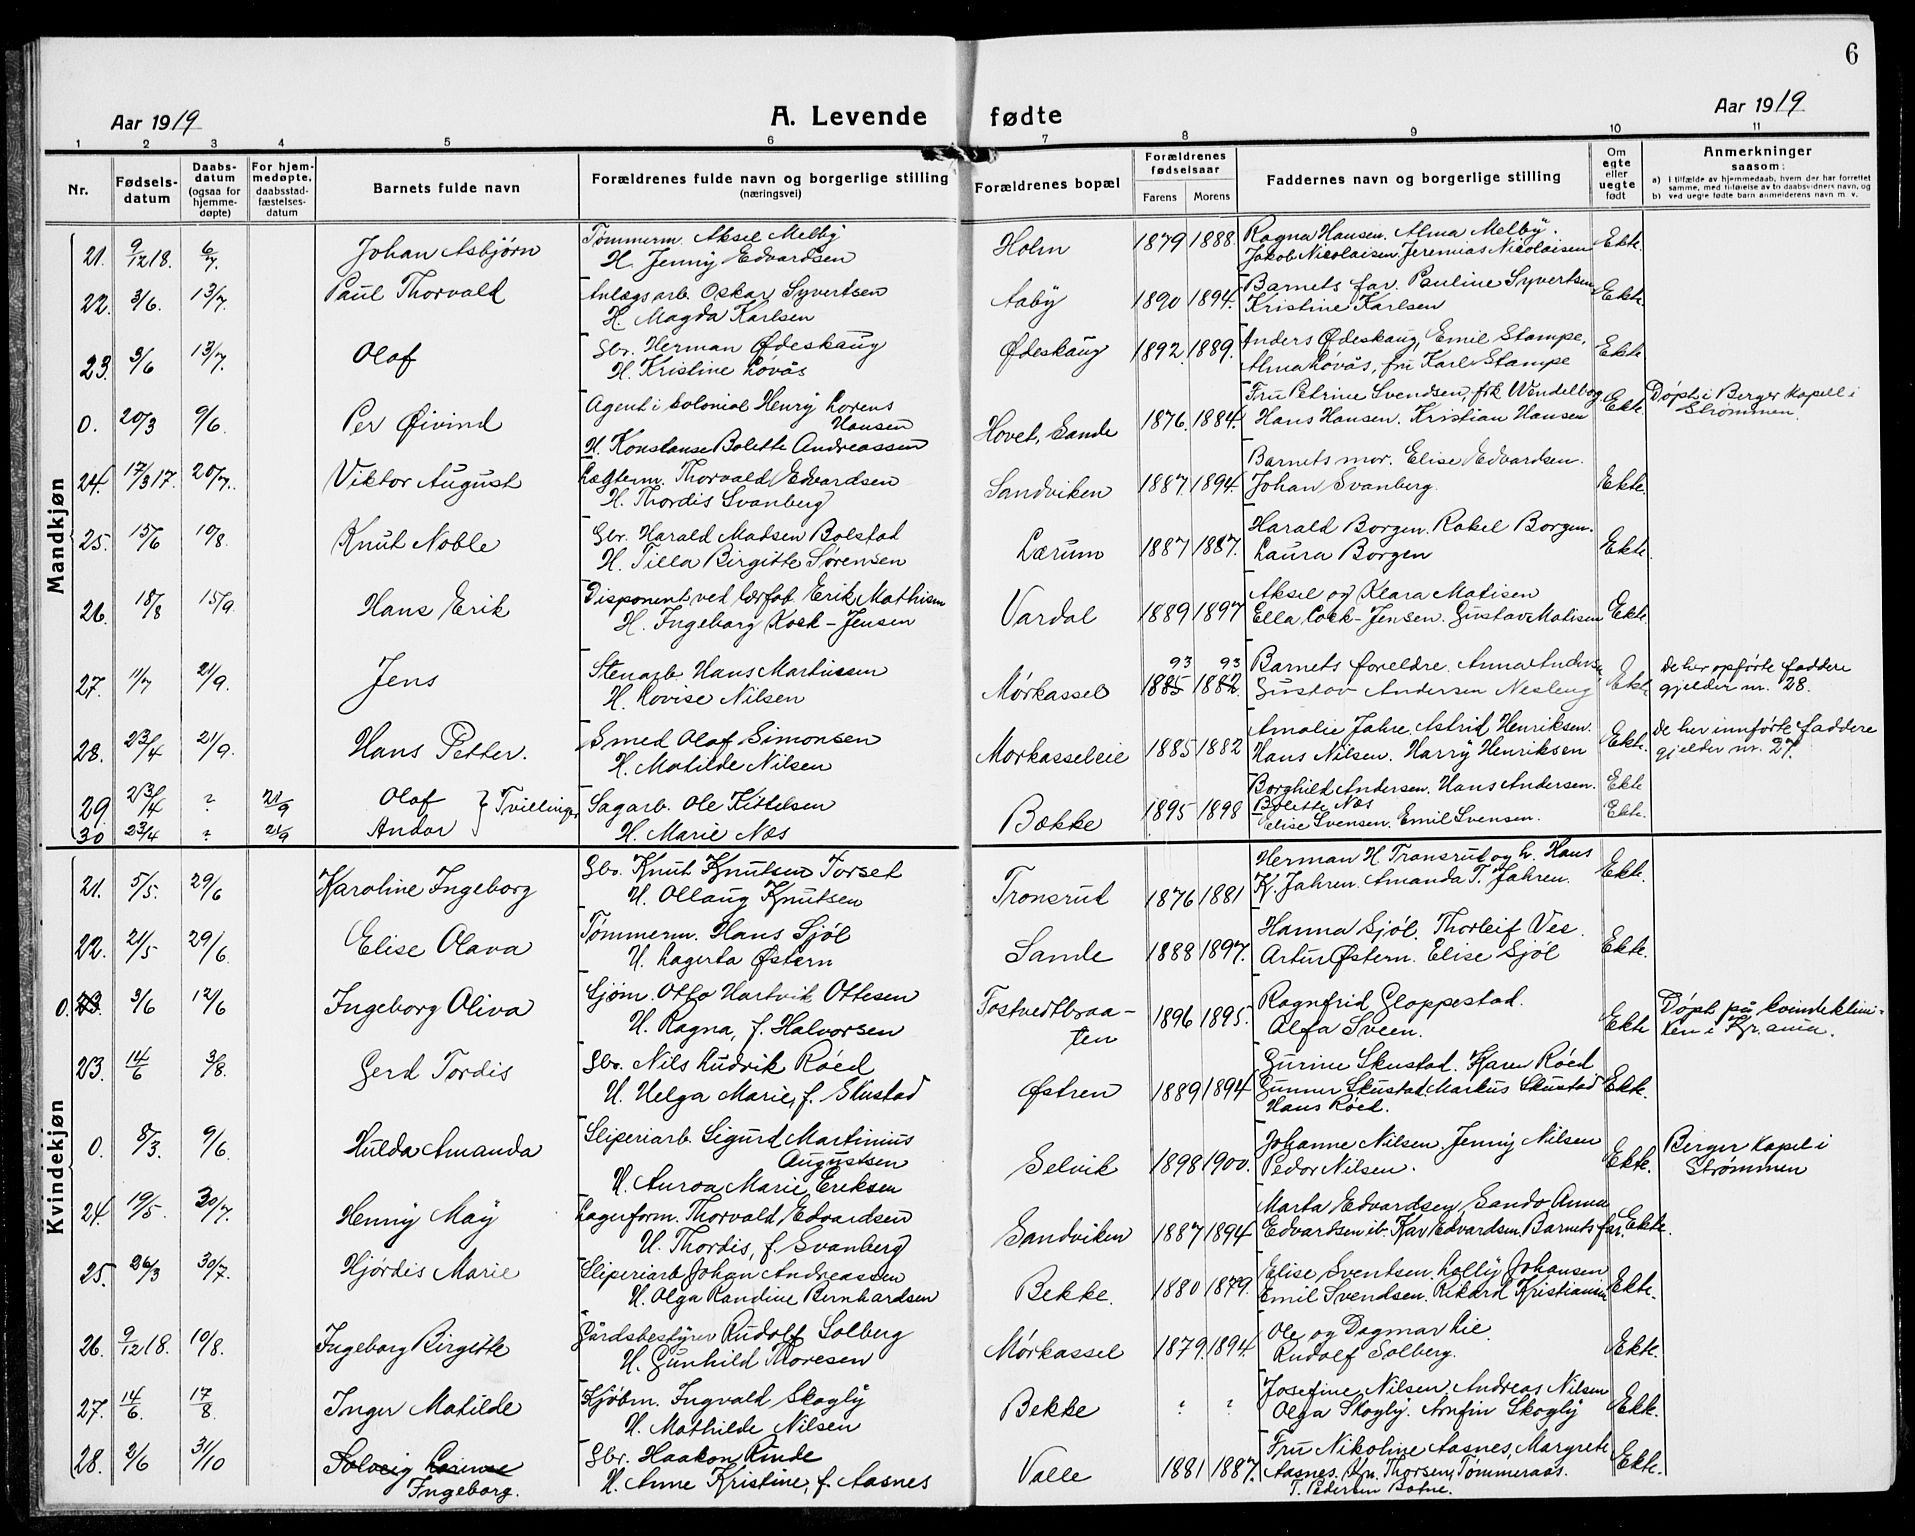 6
Aar 1919
A. Levende fødte
Aar 1919
1 2 3 4 5 6 7 8 9 10 11
Nr. | Fødselsdatum | Daabsdatum (ogsaa for hjemmedøpte) | For hjemmedøpte, daabsstadfæstelsesdatum | Barnets fulde navn | Forældrenes fulde navn og borgerlige stilling (næringsvei) | Forældrenes bopæl | Forældrenes fødselsaar Farens Morens | Faddernes navn og borgerlige stilling | Om egte eller uegte født | Anmerkninger saasom: a) i tilfælde av hjemmedaab, hvem der har forrettet samme, med tilføielse av to daabsvidners navn, og b) ved uegte fødte barn anmelderens navn m. v.
Mandkjøn
21. 9/12 18. 6/7. Johan Asbjørn Tømmerm. Aksel Melby Holm 1879 1888. Ragna Hansen. Alma Melby. Ekte.
H. Jenny Edvardsen Jakob Nicolaisen. Jeremias Nicolaisen
22. 3/6. 13/7. Paul Thorvald Anlægsarb. Oskar Syvertsen Aaby 1890 1894. Barnets far. Pauline Syvertsen Ekte
H. Magda Karlsen Kristine Karlsen
23. 3/6 13/7. Olaf Gbr. Herman Ødeskaug Ødeskaug 1892. 1889. Anders Ødeskaug, Emil Stampe, Ekte
H. Kristine Løvås Alma Løvås, fru Karl Stampe
0. 20/3 9/6. Per Øivind Agent i kolonial Henry Lorens Hansen Hovet, Sande 1876. 1884. Fru Petrine Svendsen, frk Wendelbog Ekte. Døpt i Berger kapell i
H. Konstanse Bolette Andreassen Hans Hansen. Kristian Hansen Strømmen.
24. 17/3 17. 20/7. Viktor August Lægterm. Thorvald Edvardsen Sandviken 1887. 1894. Barnets mor. Elise Edvardsen. Ekte.
H. Thordis Svanberg Johan Svanberg.
25. 15/6 10/8. Knut Noble Gbr. Harald Madsen Bolstad Lærum 1887 1887. Harald Borgen. Rakel Borgen. Ekte.
H. Tilla Birgitte Sørensen Laura Borgen
26. 18/8 15/9. Hans Erik Disponent ved lærfab. Erik Mathisen Vardal 1889 1897 Aksel og Klara Matisen Ekte.
H. Ingeborg Kock-Jensen Ella Cock-Jensen. Gustav Matisen
27. 11/7 21/9. Jens Stenarb. Hans Martinsen Mørkassel 93 1885 93 1882. Barnets foreldre. Anna Andersen Ekte De her opførte faddere
H. Lovise Nilsen Gustav Andersen Nesleng gjelder nr. 28.
28. 23/4 21/9. Hans Petter. Smed Olaf Simonsen Mørkasseleie 1885 1882 Amalie Jahre. Astrid Henriksen. Ekte. De her innførte faddere
H. Matilde Nilsen Hans Nilsen. Harry Henriksen gjelder nr. 27.
29. 23/4 ? 21/9 Olaf } Tvillinger Sagarb. Ole Kittelsen Bække 1895 1898 Borghild Andersen. Hans Andersen. Ekte
30 23/4 ? 21/9 Andor H. Marie Næs Bolette Næs Elise Svensen. Emil Svensen. Ekte.
Kvindekjøn
21. 5/5. 29/6 Karoline Ingeborg Gbr. Knut Knutsen Torset Tronsrud 1876 1881 Herman H. Tronsrud og h. Hans Ekte.
H. Ollaug Knutsen K. Jahren. Amanda T. Jahren.
22. 21/5 29/6. Elise Olava Tømmerm. Hans Sjøl Sande 1888 1897. Hanna Sjøl. Thorleif Ves. Ekte.
H. Lagerta Østern Artur Østern. Elise Sjøl
0. 23. 3/6 12/6 Ingeborg Oliva Sjøm. Otto Hartvik Ottesen Tostvedtbraaten 1896 1895. Ragnfrid Gloppestad. Ekte Døpt på kvindeklini-
H. Ragna, f. Halvorsen Alfa Sveen. ken i Kr.ania.
23. 14/6 3/8. Gerd Tordis Gbr. Nils Ludvik Røed Østren 1889 1894 Gurine Skustad. Karen Røed Ekte.
H. Helga Marie, f. Skustad Gunnar Skustad. Markus Skustad
Hans Røed.
0. 8/3. 9/6. Hulda Amanda Sliperiarb. Sigurd Martinius Augustsen Selvik 1898 1900. Johanne Nilsen. Jenny Nilsen Ekte. Berger kapel i
H. Auroa Marie Eriksen Peder Nilsen. Strømmen
24. 19/5. 30/7. Henny Maÿ Lagerform. Thorvald Edvardsen Sandviken 1887 1894 Marta Edvardsen, Sando Anna Ekte.
H. Thordis, f. Svanberg Edvardsen ib. Kar Edvardsen. Barnets far.
25. 26/3 30/7. Hjørdis Marie Sliperiarb. Johan Andreassen Bekke. 1880 1879. Elise Sventsen. Lolly Johansen Ekte.
H. Olga Randine Bernhardsen Emil Svendsen. Rikard Kristiansen
26. 9/12 18. 10/8. Ingeborg Birgitte Gårdsbestyrer Rudolf Solberg Mørkassel 1879. 1894. Ole og Dagmar Lie. Ekte.
H. Gunhild Thoresen Rudolf Solberg.
27. 14/6. 17/8 Inger Matilde Kjøbm. Ingvald Skogly Bekke ? ? Josefine Nilsen. Andreas Nilsen Ekte.
H. Mathilde Nilsen Olga Skogly. Arnfin Skogly
28. 2/6 31/10 Solveig Ingeborg. Gbr. Haakon Rinde Valle 1881 1887. Fru Nikoline Aasnes, Margrete Ekte.
H. Anne Kristine, f. Aasnes Aasnes. Thorsen, Tømmeraas.
T. Pedersen Bofne.